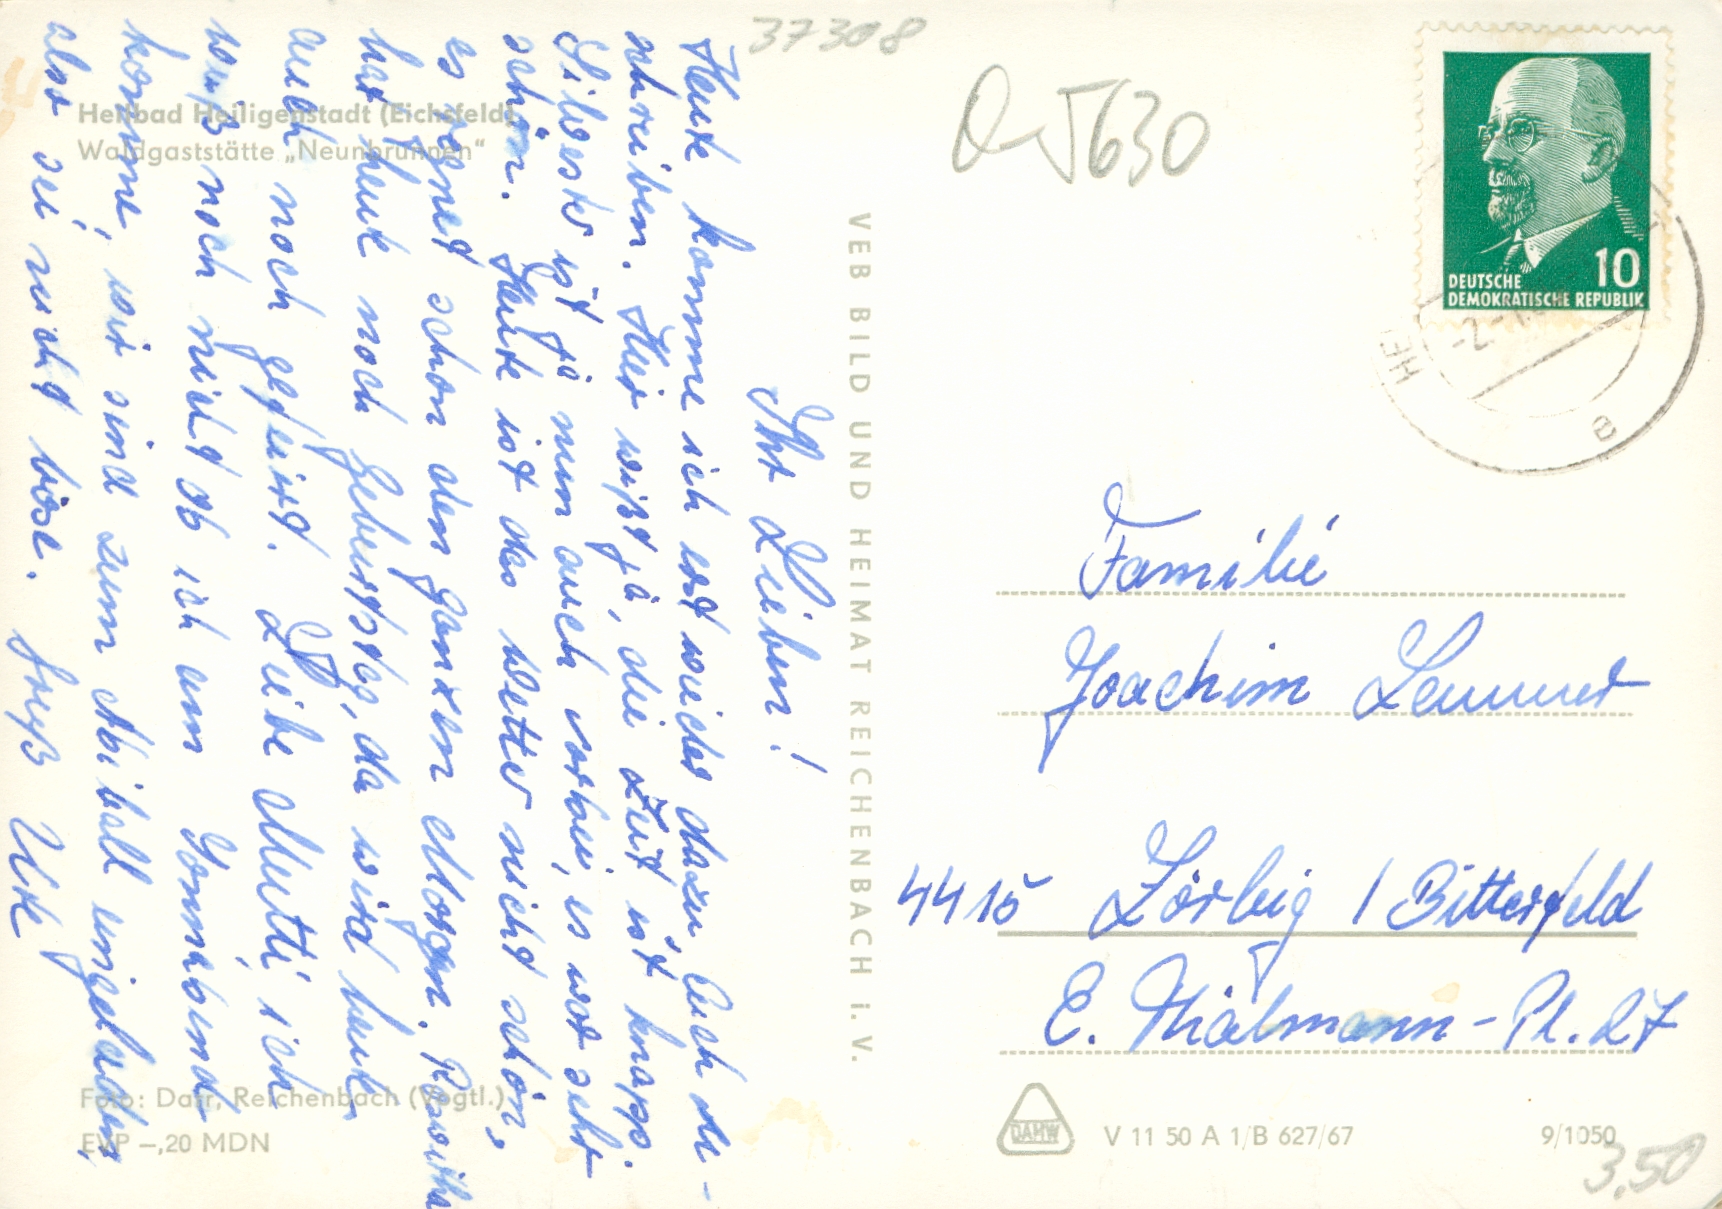 37308
Q 5630
Heilbad Heiligenstadt (Eichsfeld)
Waldgaststätte „Neunbrunnen“
DEUTSCHE
DEMOKRATISCHE REPUBLIK
10
HE
a
Ihr Lieben!
Heute komme ich erst wieder dazu, Euch zu
schreiben. Hier wißt ja, die Zeit ist knapp.
Silvester ist ja nun auch vorbei, es war sehr
schön. Heute ist das Wetter nicht schön,
es regnet schon den ganzen Morgen. Roswitha
hat heute noch Geburtstag, da wird heute
auch noch gefeiert. Liebe Mutti ich
weiß noch nicht ob ich am Sonnabend
komme, wir sind zum Abiball eingeladen,
also sei nicht böse.
Gruß Ute
VEB BILD UND HEIMAT REICHENBACH i.V.
Familie
Joachim Lemmer
4415 Zörbig / Bitterfeld
E. Thälmann-Pl. 27
Foto: Darr, Reichenbach (Vogtl.)
EVP –,20 MDN
DAMW
V 11 50 A 1/B 627/67
9/1050
3,50